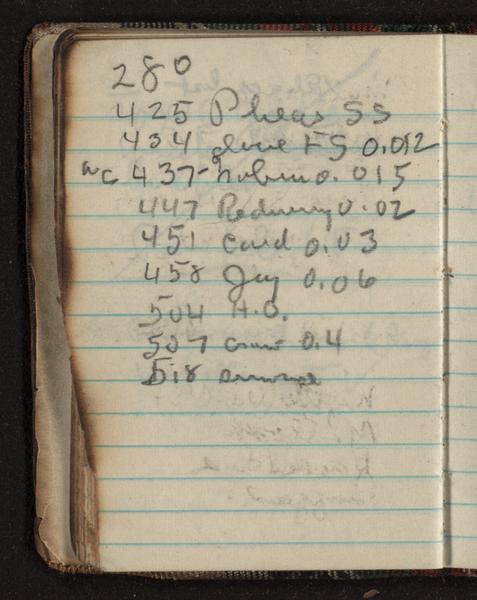 280
425 Pheas SS
434 dove FS 0.012
NC 437 Robin 0.015
447 Redwing 0.02
451 Card 0.03
458 Jay 0.06
504 H.O.
507 Crow 0.4
518